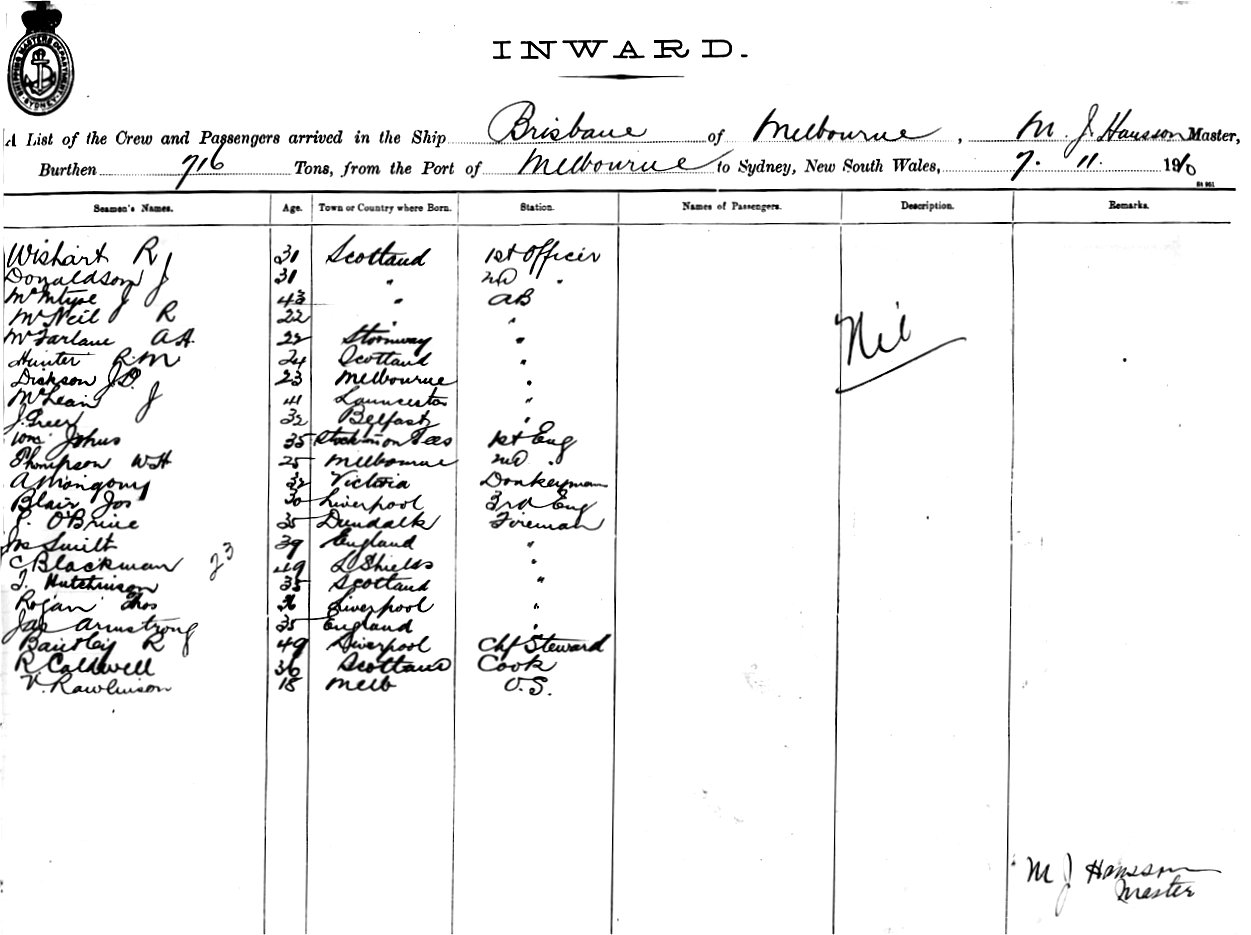 SHIPPING MASTERS DEPARTMENT SYDNEY
INWARD.
A List of the Crew and Passengers arrived in the Ship Brisbane of Melbourne, M. J. Hansson Master,
Burthen 716 Tons, from the Port of Melbourne to Sydney, New South Wales, 7. 11. 1910
Seamen's Names. Age. Town or Country where Born. Station. Names of Passengers. Description. Remarks.
Wishart R 31 Scotland 1st Officer
Donaldson J 31 " 2nd "
McIntyre J 43 " AB
McNeil R 22 " "
McFarlane A.H. 22 Stornway "
Hunter R.M 24 Scotland "
Nil
Dickson J.D. 23 Melbourne "
McLean J 41 Launceston "
J. Greer 32 Belfast "
Wm Johns 35 Stockton on Tees 1st Eng
Thompson WH 25 Melbourne 2nd "
32 Victoria Donkeyman
Blair Jos 30 Liverpool 3rd Eng
O'Brine 35 Dundalk Fireman
Jos Smilt 39 England "
C Blackman 49 Shields "
23
T. Hutchinson 35 Scotland "
Rogan Thos 36 Liverpool "
Jas Armstrong 35 England "
R 49 Liverpool Chf Steward
R Caldwell 36 Scotland Cook
V. Rawlinson 18 Melb O.S.
M J Hansson
Master